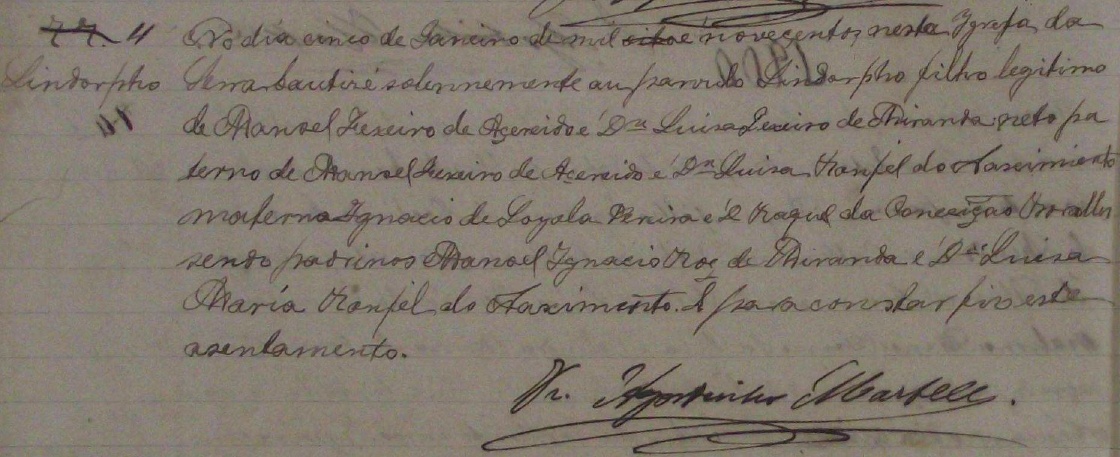 77. 4 No dia cinco de Janeiro de mil oito e novecentos nesta Igreja da
Lindorpho Serra bautizé solennemente au parvulo Lindorpho filho legitimo
11 de Manoel Teixeiro de Acereido e Dna Luisa Teixeiro de Miranda neto pa
terno de Manoel Teixeiro de Acereido e Dna Luisa Ranjel do Nascimiento
materno Ignacio de Loyola Pereira e D Raquel da Conceição
sendo padrinos Manoel Ignacio Roç de Miranda e Dna Luisa
María Ranjel do Nascimento. E para constar fiz este
asentamento.
Fr. Agostinho Martell.